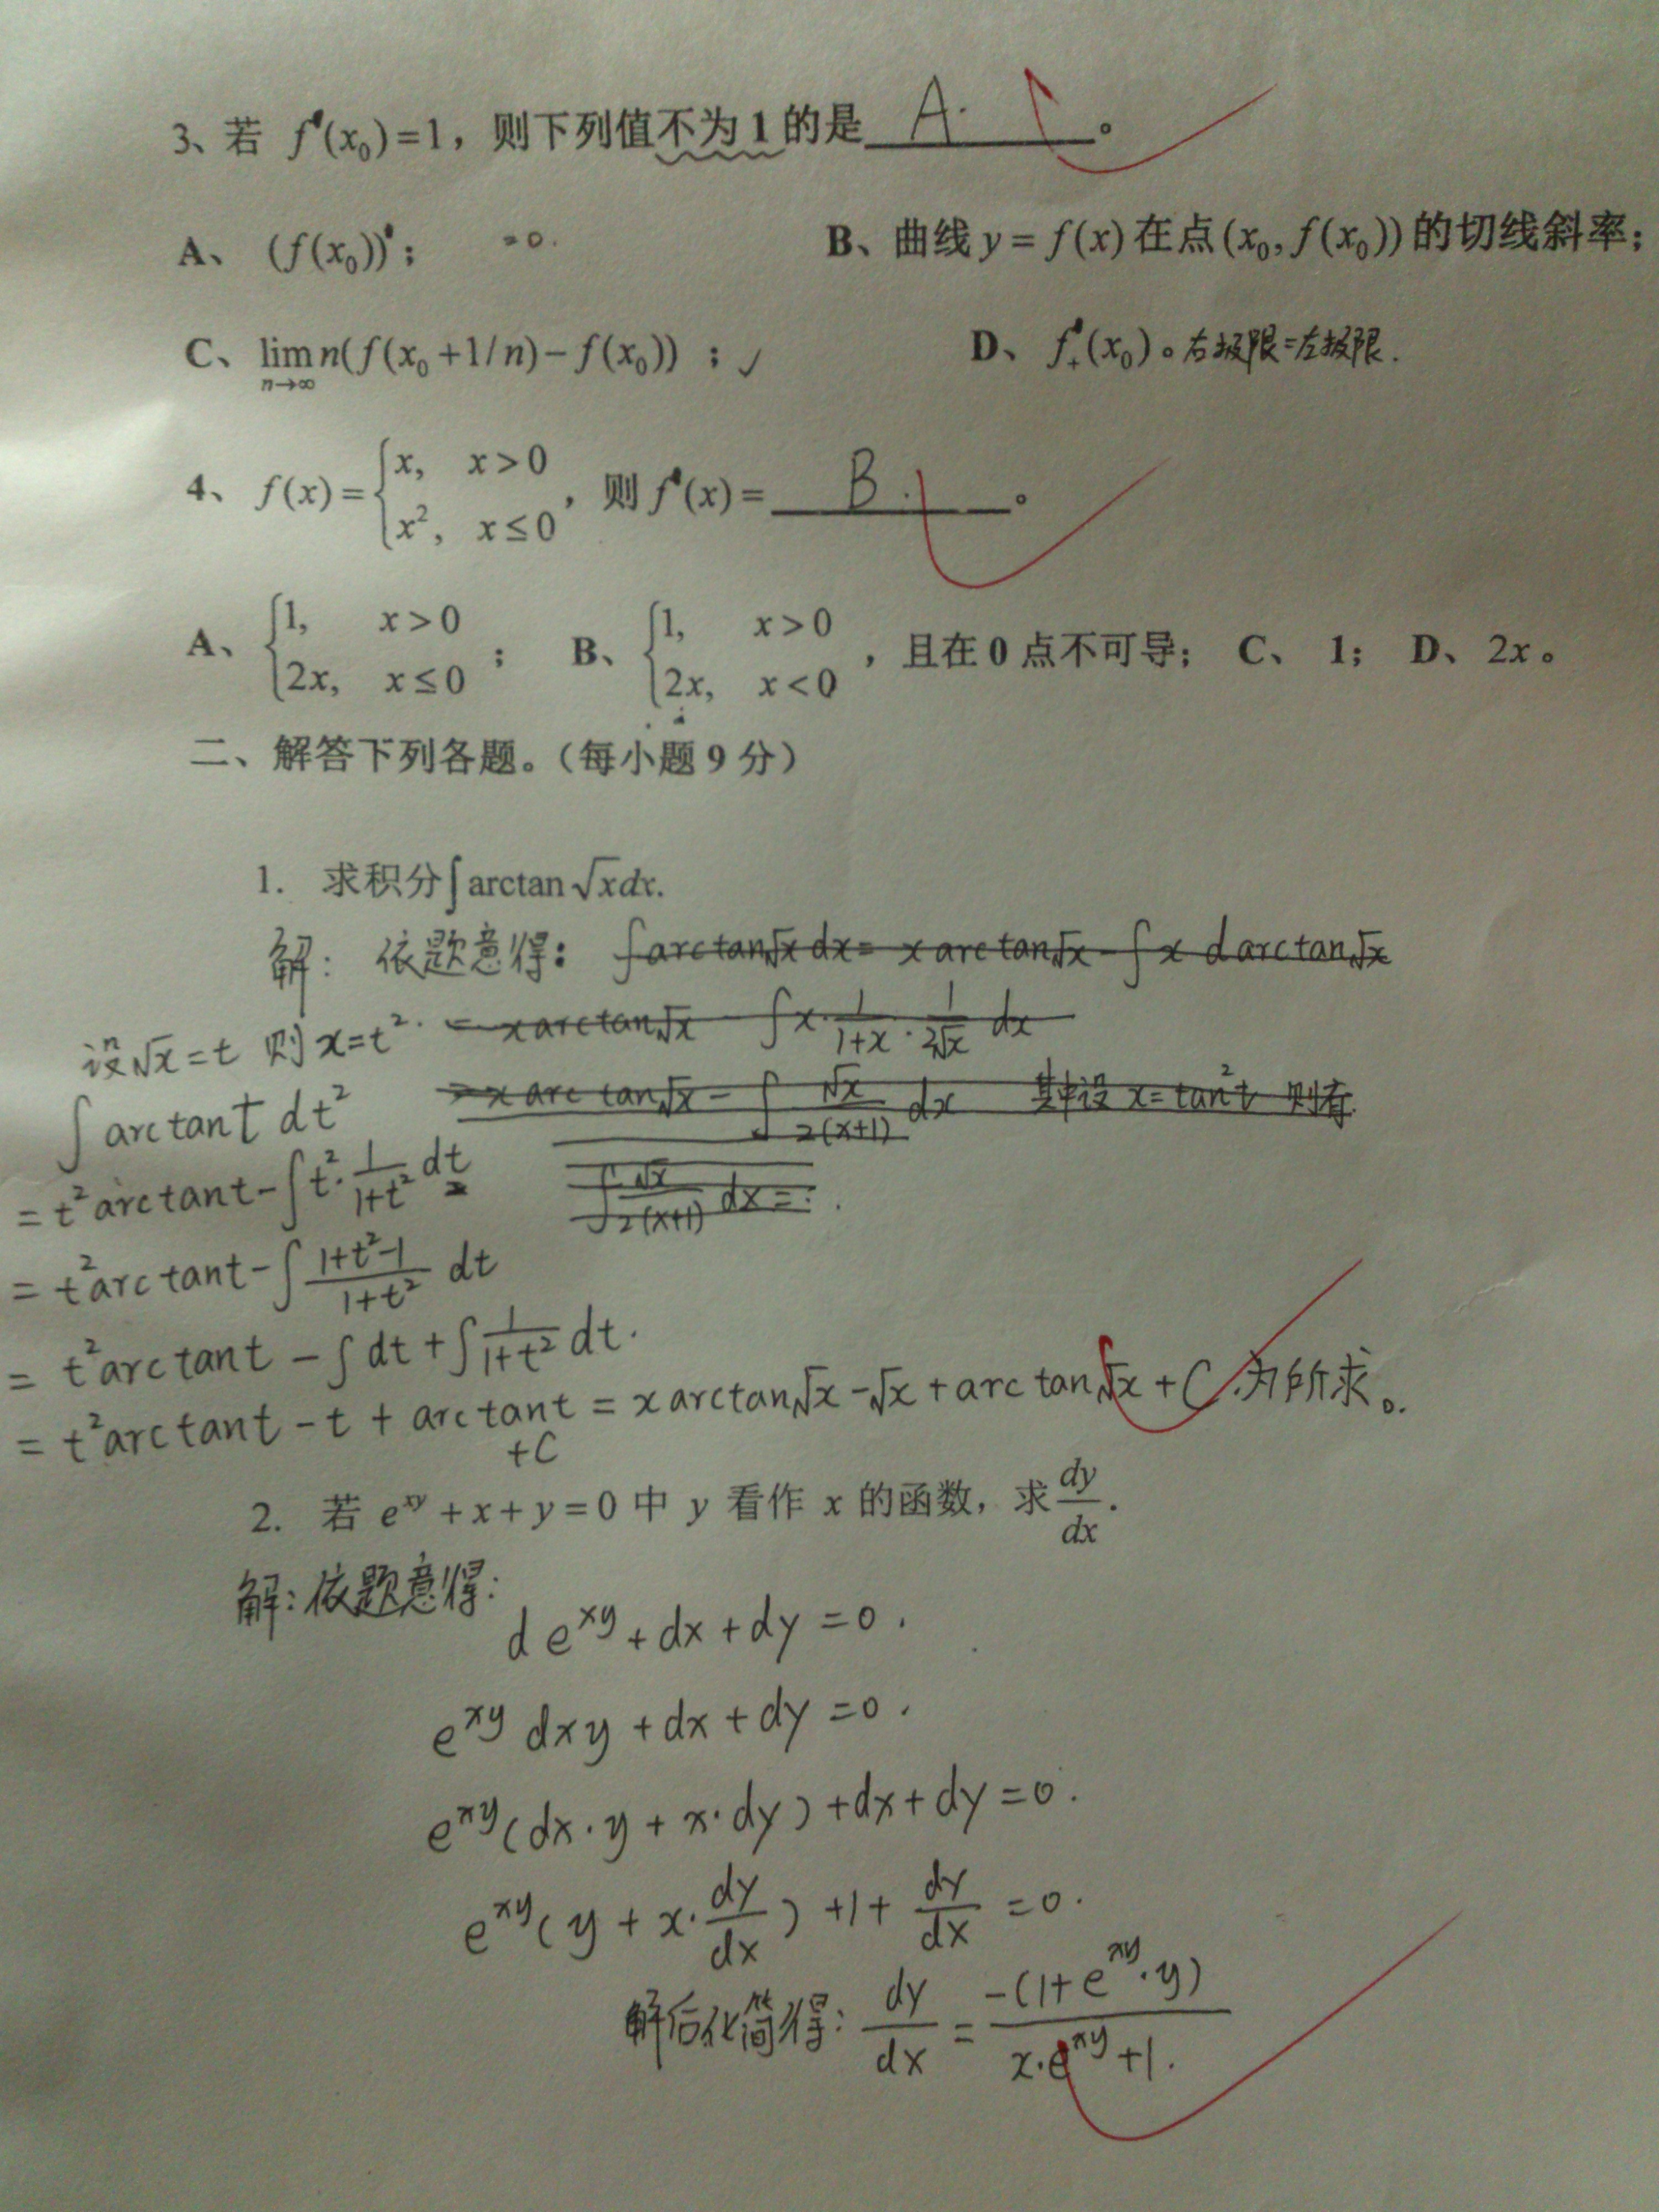 3、若 f'(x₀)=1，则下列值不为1的是 A. 。
A、 (f(x₀))'； =0. B、曲线 y = f(x) 在点 (x₀, f(x₀)) 的切线斜率；
C、 lim n→∞ n(f(x₀+1/n)−f(x₀)) ；✓ D、 f'₊(x₀)。右极限=左极限.
4、 f(x)={x, x>0 ; x², x≤0 ，则 f'(x)= B. 。
A、 {1, x>0 ; 2x, x≤0 ； B、 {1, x>0 ; 2x, x<0 ，且在0点不可导； C、 1； D、 2x。
二、解答下列各题。（每小题9分）
1. 求积分∫arctan √x dx.
解： 依题意得： ∫arctan√x dx = x arctan√x − ∫ x d arctan√x
设√x=t 则 x=t². = x arctan√x − ∫x·1/(1+x)·1/(2√x) dx
∫ arctan t dt² = x arctan√x − ∫ √x/(2(x+1)) dx 其中设 x=tan²t 则有
= t² arctant − ∫t²·1/(1+t²) dt ∫ √x/(2(x+1)) dx =
= t² arctant − ∫ (1+t²−1)/(1+t²) dt
= t² arctant − ∫dt + ∫1/(1+t²) dt.
= t² arctant − t + arctant +C = x arctan√x − √x + arctan√x + C 为所求。
2. 若 e^{xy} + x + y = 0 中 y 看作 x 的函数，求 dy/dx.
解：依题意得：
d e^{xy} + dx + dy = 0.
e^{xy} dxy + dx + dy = 0.
e^{xy}(dx·y + x·dy) + dx + dy = 0.
e^{xy}(y + x·dy/dx) +1+ dy/dx = 0.
解后化简得： dy/dx = −(1+e^{xy}·y)/(x·e^{xy}+1).